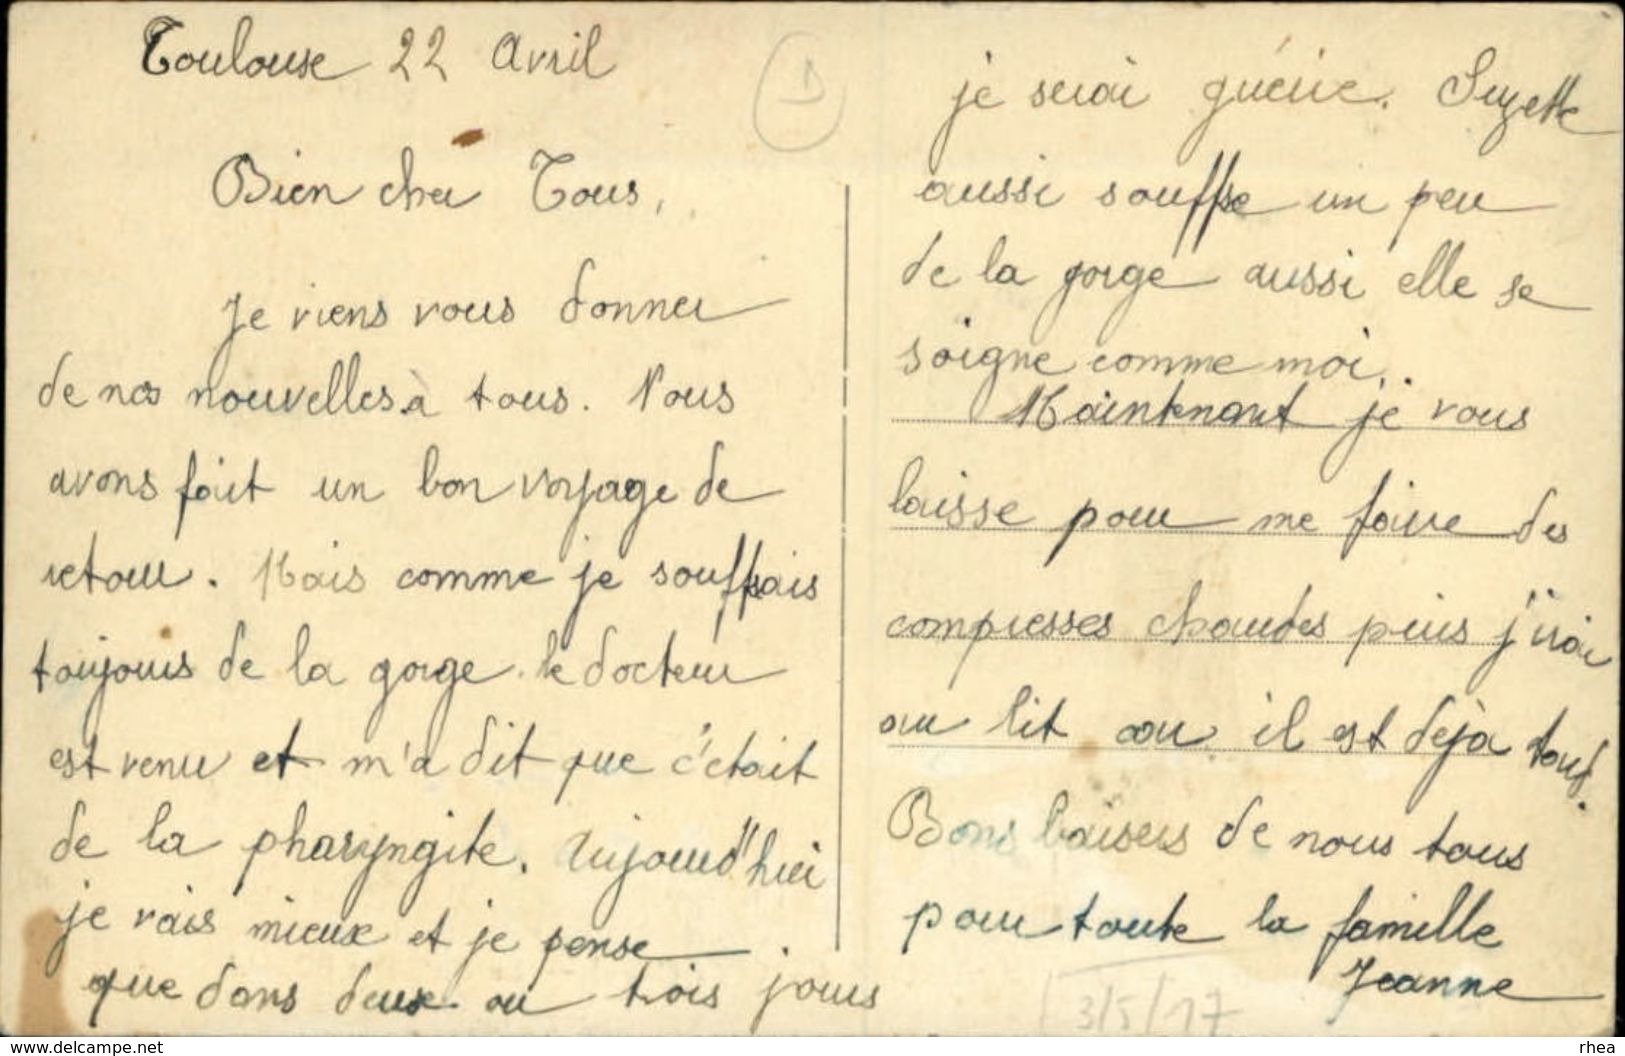 Toulouse 22 Avril
Bien cher Tous,
Je viens vous donner
de nos nouvelles à tous. Nous
avons fait un bon voyage de
retour. Mais comme je souffrais
toujours de la gorge. le docteur
est venu et m'a dit que c'était
de la pharyngite. Aujourd'hui
je vais mieux et je pense
que dans deux ou trois jours
je serai guérie. Suzette
aussi souffre un peu
de la gorge aussi elle se
soigne comme moi.
Maintenant je vous
laisse pour me faire des
compresses chaudes puis j'irai
au lit car il est déjà tard.
Bons baisers de nous tous
pour toute la famille
Jeanne
3/5/17
www.delcampe.net
rhea